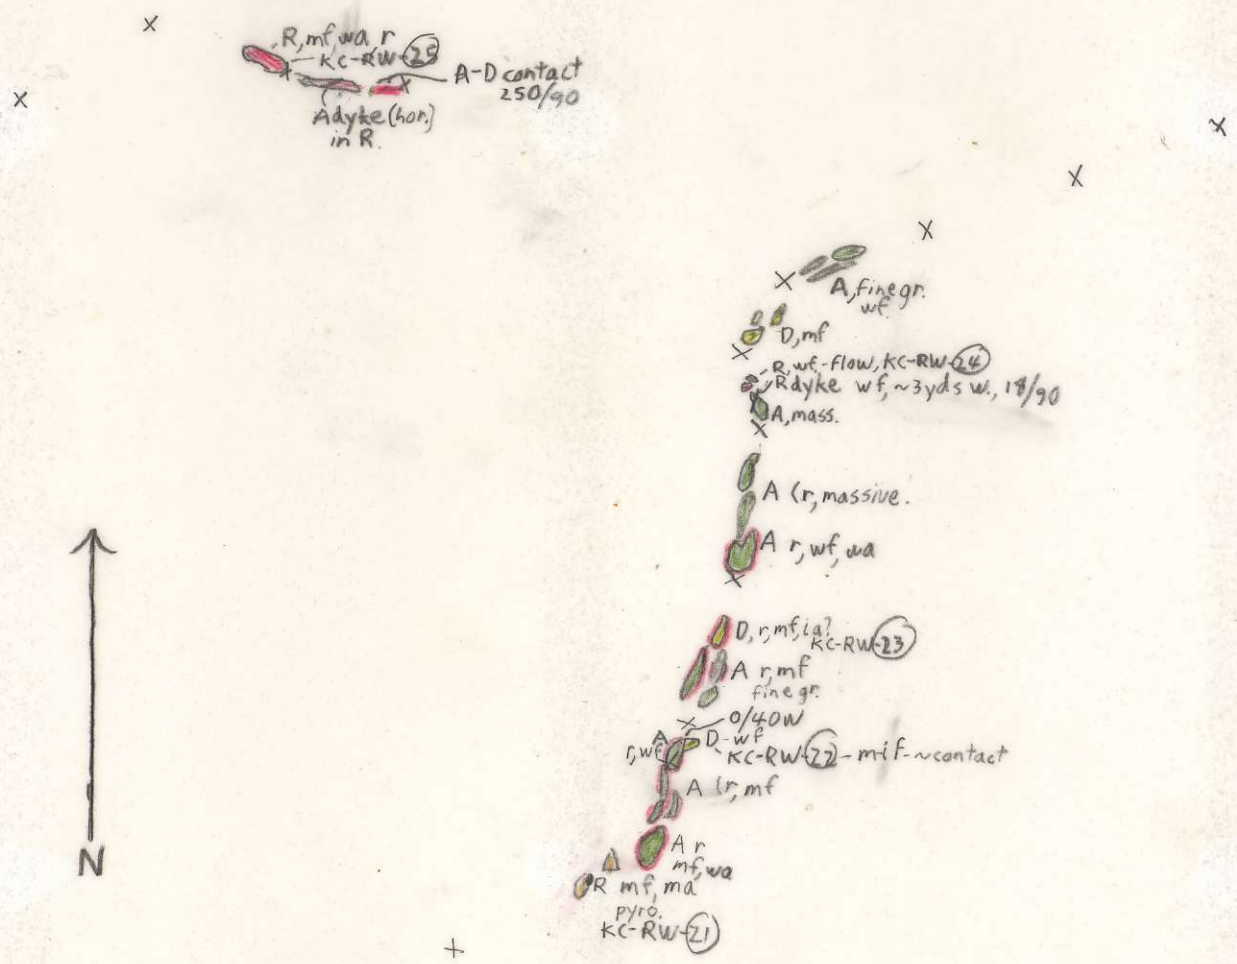 R, mf, wa r
KC-RW-25
A-D contact
250/90
A dyke (hor.)
in R.
A, fine gr.
wf
D, mf
R, wf-flow, KC-RW-24
R dyke wf, ~3yds w., 18/90
A, mass.
A (r, massive.
A r, wf, wa
D, r, mf, ia?
KC-RW-23
A r, mf
fine gr.
0/40W
A
r, wf
D-wf
KC-RW-22-mif-~contact
A (r, mf
A r
mf, wa
R mf, ma
pyro.
KC-RW-21
N